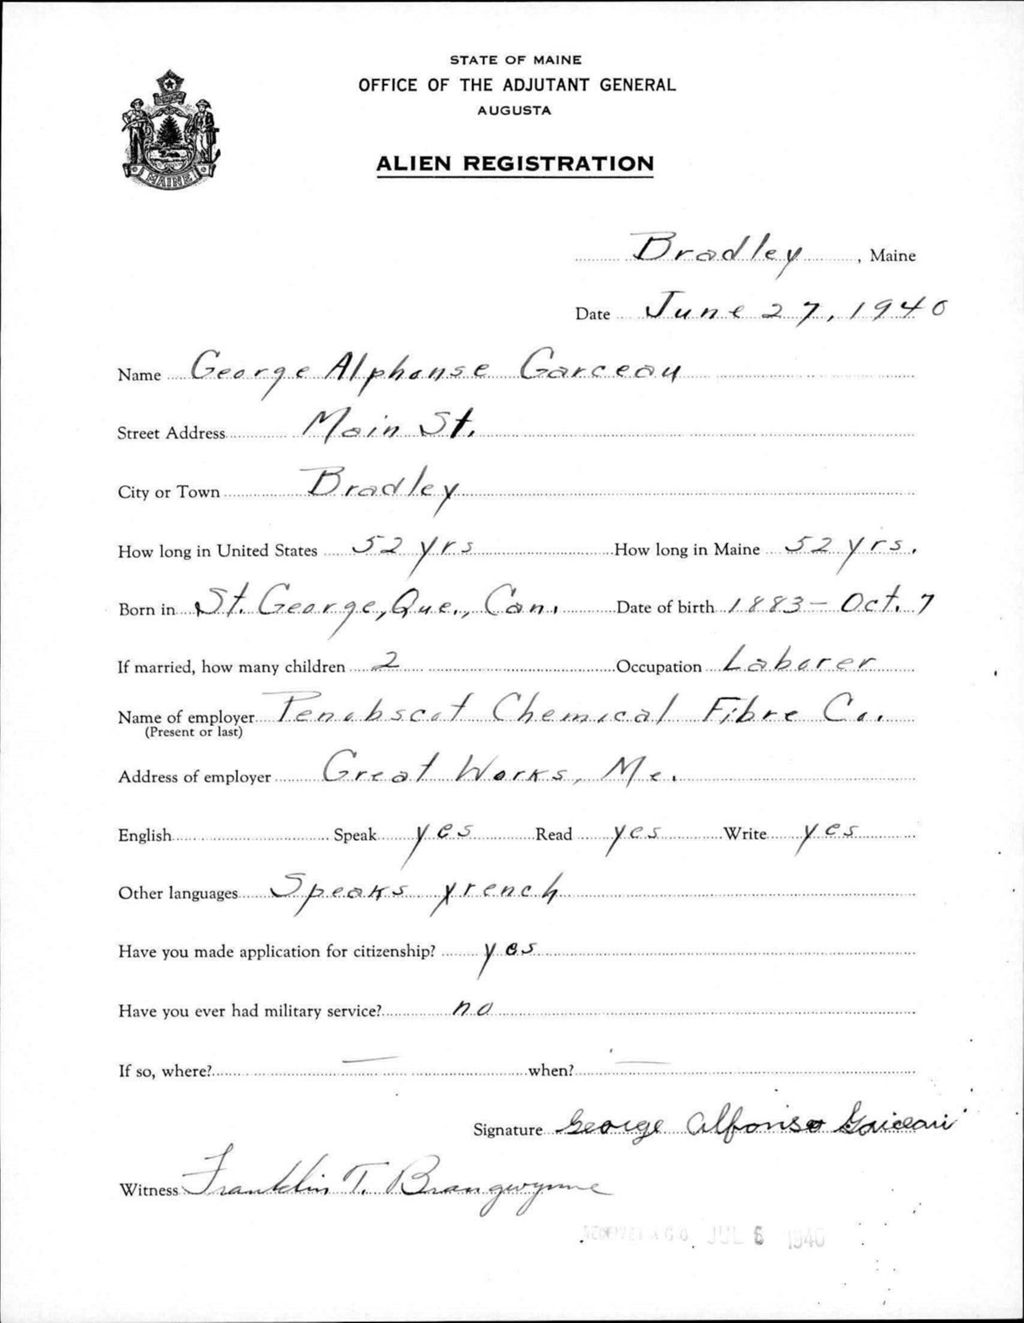 STATE OF MAINE
OFFICE OF THE ADJUTANT GENERAL
AUGUSTA
ALIEN REGISTRATION
MAINE
Bradley, Maine
Date June 27, 1940
Name George Alphonse Garceau
Street Address Main St.
City or Town Bradley
How long in United States 52 yrs How long in Maine 52 yrs.
Born in St. George, Que., Can. Date of birth 1883 - Oct. 7
If married, how many children 2 Occupation Laborer
Name of employer Penobscot Chemical Fibre Co.
(Present or last)
Address of employer Great Works, Me.
English Speak yes Read yes Write yes
Other languages Speaks French
Have you made application for citizenship? yes
Have you ever had military service? no
If so, where? — when? —
Signature George Alfonso
Witness Franklin T. Brangwynne
RECEIVED A.G.O. JUL 6 1940